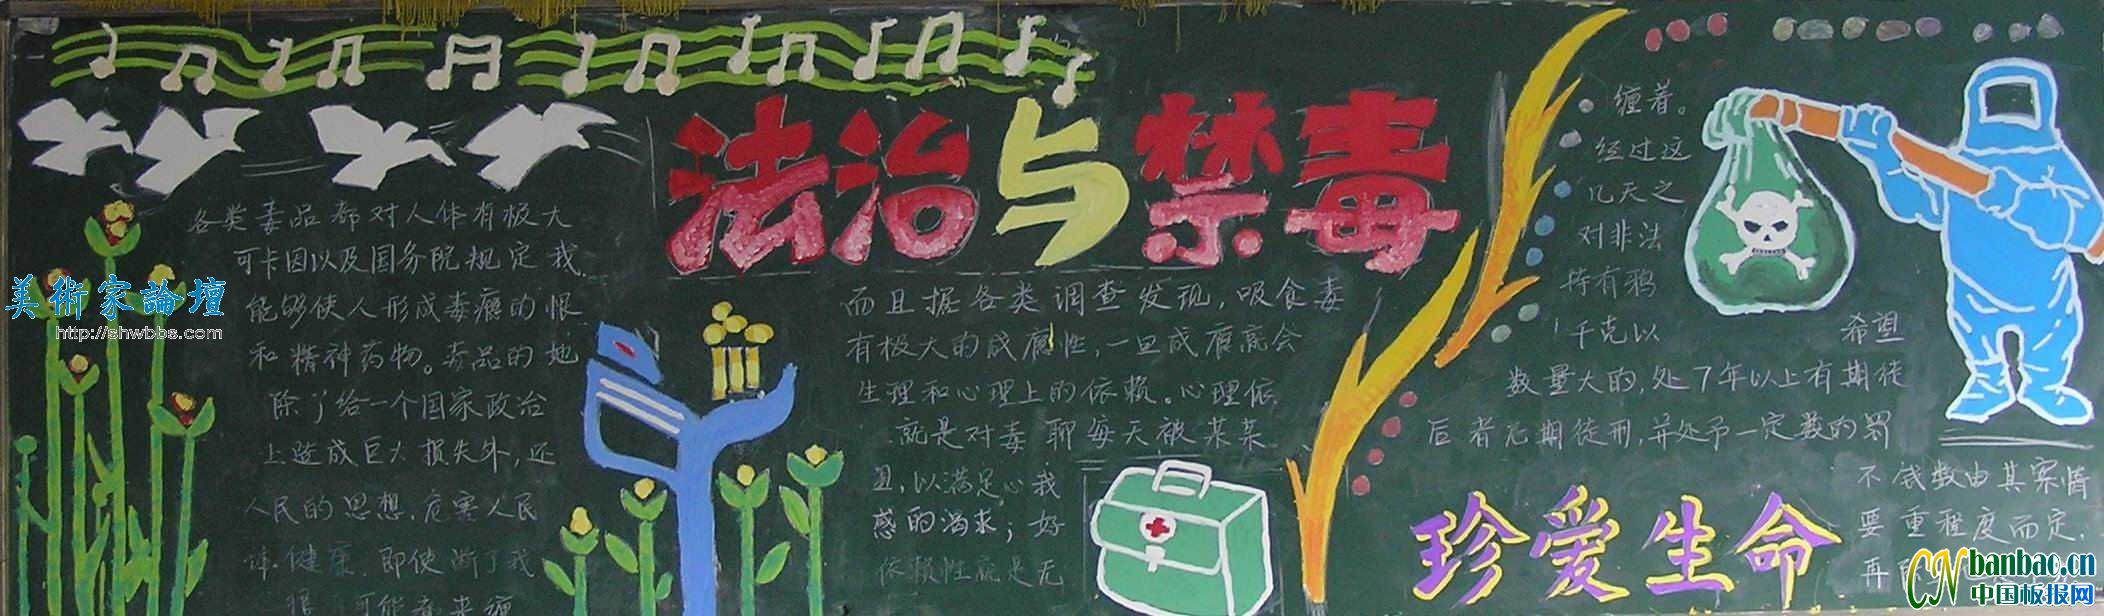 法治与禁毒
各类毒品都对人体有极大
可卡因以及国务院规定我
能够使人形成毒瘾的恨
和精神药物。毒品的地
除了给一个国家政治
上造成巨大损失外，还
人民的思想，危害人民
体健康，即使断了我
可能毒来缠
而且据各类调查发现，吸食毒
有极大的成瘾性，一旦成瘾高会
生理和心理上的依赖。心理依
就是对毒聊每天被某某
且，以满足心我
惑的渴求；好
依赖性就是无
缠着。
经过这
几天之
对非法
持有鸦
千克以
希望
数量大的，处7年以上有期徒
后者无期徒刑，并处予一定数的罚
不钱数由其案情
要重程度而定，
再
珍爱生命
美術家論壇
http://shwbbs.com
CN banbao.cn
中国板报网